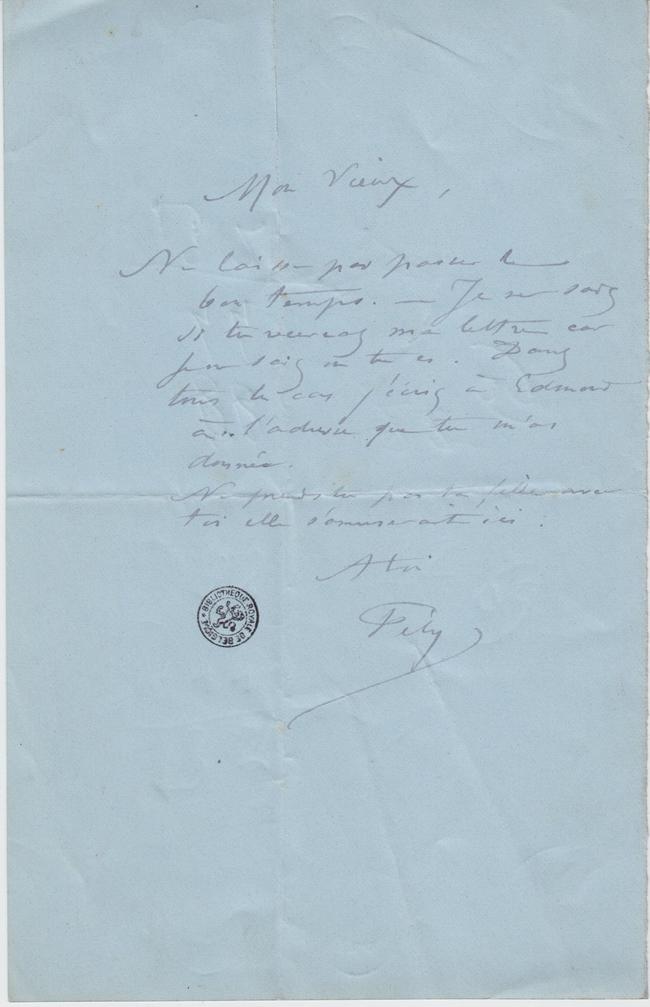 Mon Vieux,
Ne laisse pas passer le
bon temps. — Je ne sais
si tu recevras ma lettre car
je ne sais où tu es. Dans
tous les cas j'écris à Edmond
à l'adresse que tu m'as
donnée.
Ne prends tu pas ta fille avec
toi elle s'amuserait ici.
A toi
Fély
BIBLIOTHEQUE ROYALE DE BELGIQUE *